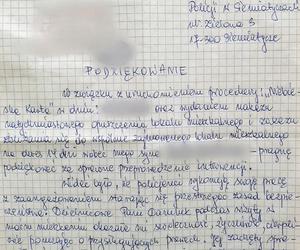 Policji w Siemiatyczach
ul. Zielona 3
17-300 Siemiatycze
PODZIĘKOWANIE
W związku z uruchomieniem procedury "Niebie-
skiej Karty" w dniu: oraz wydaniem nakazu
natychmiastowego opuszczenia lokalu mieszkalnego i zakazu
zbliżania się do wspólnie zajmowanego lokalu mieszkalnego
na okres 14 dni wobec mego syna - pragnę
podziękować za sprawne przeprowadzenie interwencji.
Widać było, że policjanci wykonują swoją pracę
z zaangażowaniem starając się przestrzegać zasad bezpie-
czeństwa. Dzielnicowa Pani podczas wizyty w
moim mieszkaniu okazała się
nie pomijając o przysługujących prawach